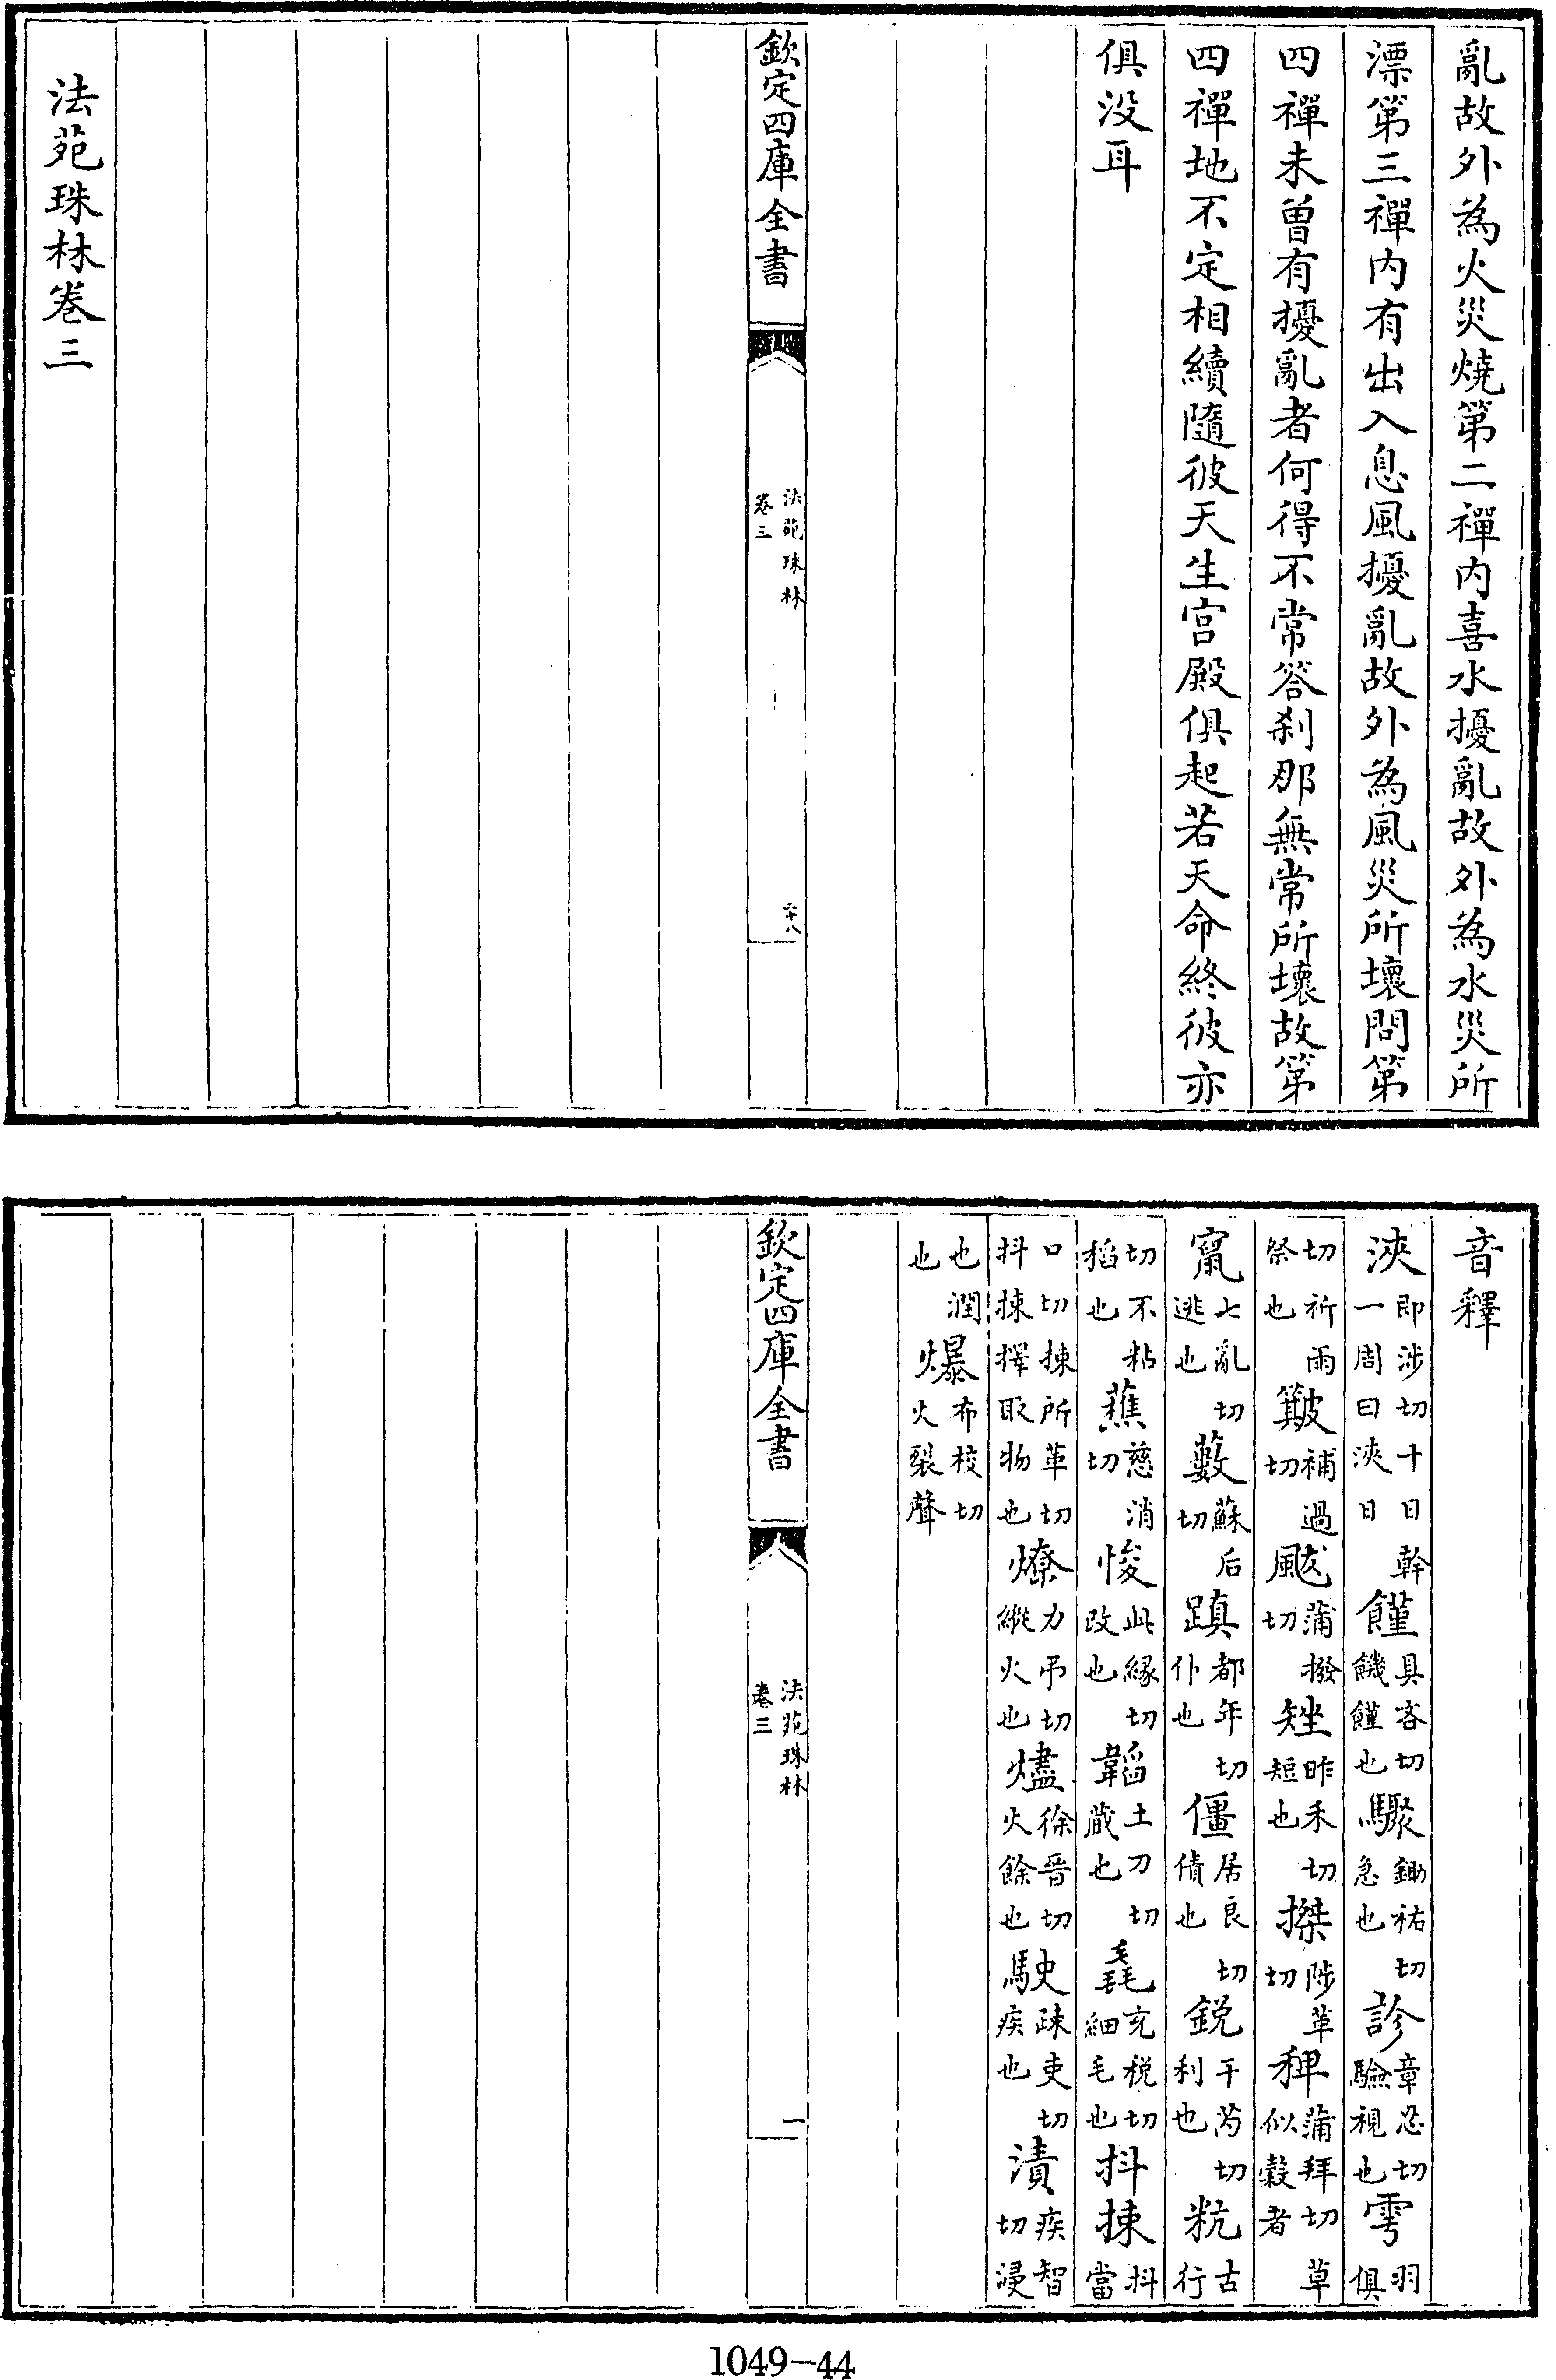 亂故外為火災燒第二禪内喜水擾亂故外為水災所
漂第三禪内有出入息風擾亂故外為風災所壞問第
四禪未曾有擾亂者何得不常答刹那無常所壞故第
四禪地不定相續隨彼天生宫殿俱起若天命終彼亦
俱没耳
欽定四庫全書
法苑珠林
卷三
二十八
法苑珠林卷三
音釋
浹即涉切十日幹一周曰浹日饉具吝切饑饉也驟鋤祐切急也診章忍切驗視也雩羽俱
切祈雨祭也簸補過切颰蒲撥切矬昨禾切短也搩陟革切稗蒲拜切草似穀者
竄七亂切逃也藪蘇后切蹎都年切仆也僵居良切僨也鋭于芮切利也粇古行
切不粘稻也蕉慈消切悛此緣切改也韜土刀切藏也毳充税切細毛也抖揀抖當
口切揀所革切抖揀擇取物也燎力弔切縱火也燼徐晉切火餘也駛疎吏切疾也漬疾智切浸
也潤也爆布校切火裂聲
欽定四庫全書
法苑珠林
卷三
一
1049-44